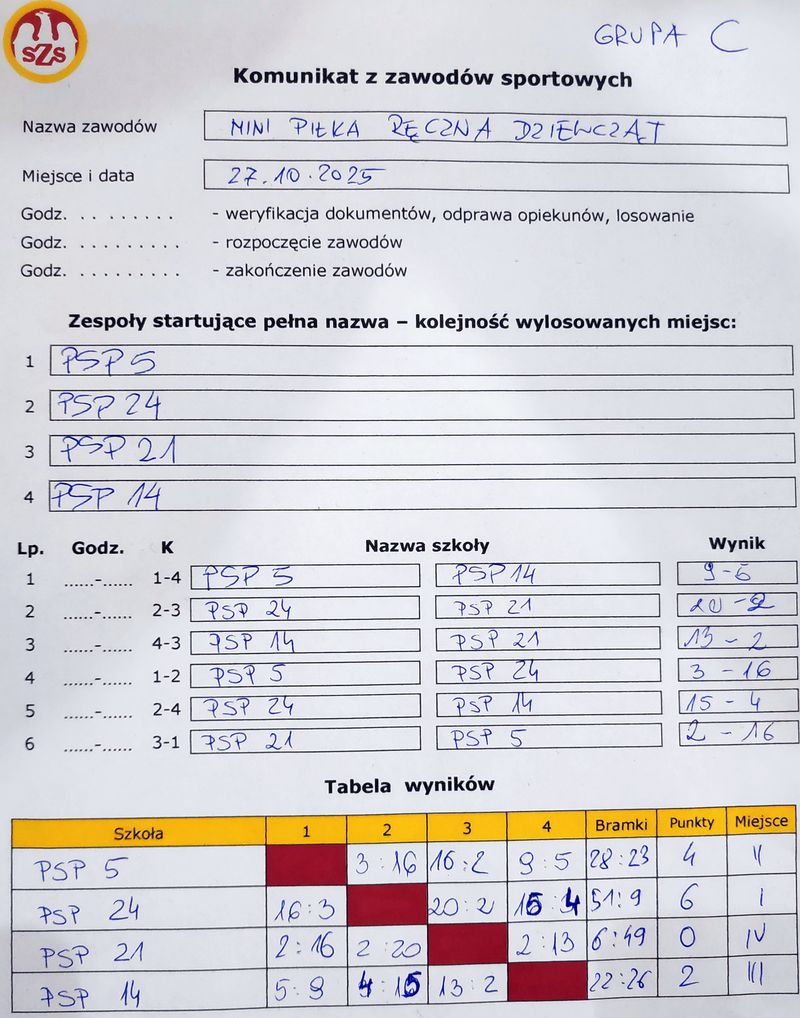 SZS
GRUPA C
Komunikat z zawodów sportowych
Nazwa zawodów MINI PIŁKA RĘCZNA DZIEWCZĄT
Miejsce i data 27.10.2025
Godz. . . . . . . . . - weryfikacja dokumentów, odprawa opiekunów, losowanie
Godz. . . . . . . . . . - rozpoczęcie zawodów
Godz. . . . . . . . . . - zakończenie zawodów
Zespoły startujące pełna nazwa – kolejność wylosowanych miejsc:
1 PSP 5
2 PSP 24
3 PSP 21
4 PSP 14
Lp. Godz. K Nazwa szkoły Wynik
1 ......-...... 1-4 PSP 5 PSP 14 9-
2 ......-...... 2-3 PSP 24 PSP 21 20-2
3 ......-...... 4-3 PSP 14 PSP 21 13-2
4 ......-...... 1-2 PSP 5 PSP 24 3-16
5 ......-...... 2-4 PSP 24 PSP 14 15-4
6 ......-...... 3-1 PSP 21 PSP 5 2-16
Tabela wyników
Szkoła 1 2 3 4 Bramki Punkty Miejsce
PSP 5 3:16 16:2 9:5 28:23 4 II
PSP 24 16:3 20:2 15:4 51:9 6 I
PSP 21 2:16 2:20 2:13 6:49 0 IV
PSP 14 5:9 4:15 13:2 22:26 2 III